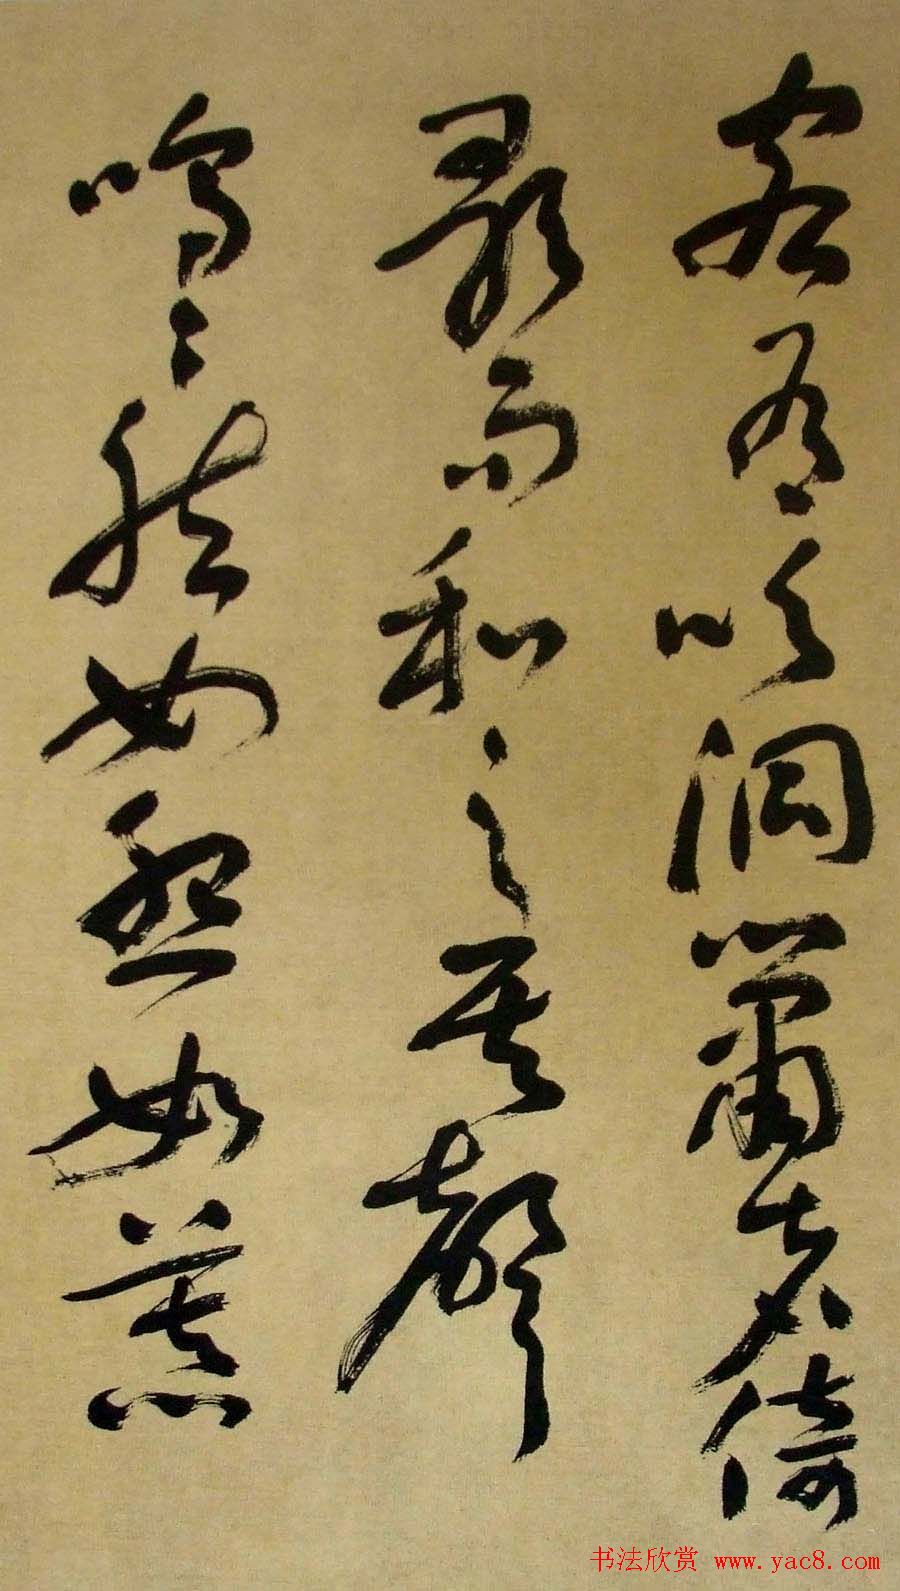 客有吹洞箫者倚
歌而和之其声
呜呜然如怨如慕
书法欣赏 www.yac8.com